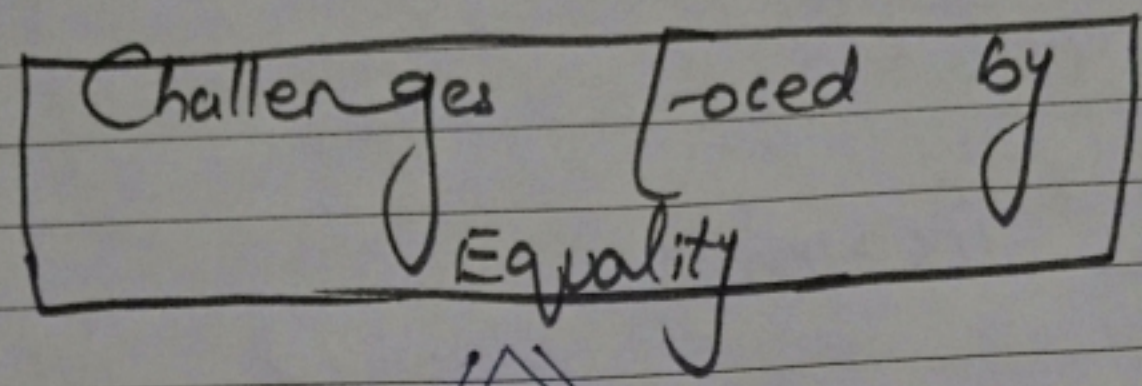 Challenges Faced by
Equality